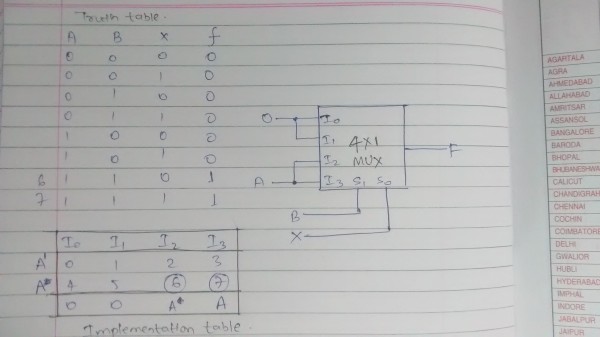 Truth table.
A B x f
0 0 0 0
0 0 1 0
0 1 0 0
0 1 1 0
1 0 0 0
1 0 1 0
6 1 1 0 1
7 1 1 1 1
I0 I1 I2 I3
A' 0 1 2 3
A 4 5 6 7
0 0 A A
Implementation table.
0
A
B
X
I0
I1
I2
I3 S1 S0
4X1
MUX
F
AGARTALA
AGRA
AHMEDABAD
ALLAHABAD
AMRITSAR
ASSANSOL
BANGALORE
BARODA
BHOPAL
BHUBANESHWA
CALICUT
CHANDIGRAH
CHENNAI
COCHIN
COIMBATORE
DELHI
GWALIOR
HUBLI
HYDERABAD
IMPHAL
INDORE
JABALPUR
JAIPUR